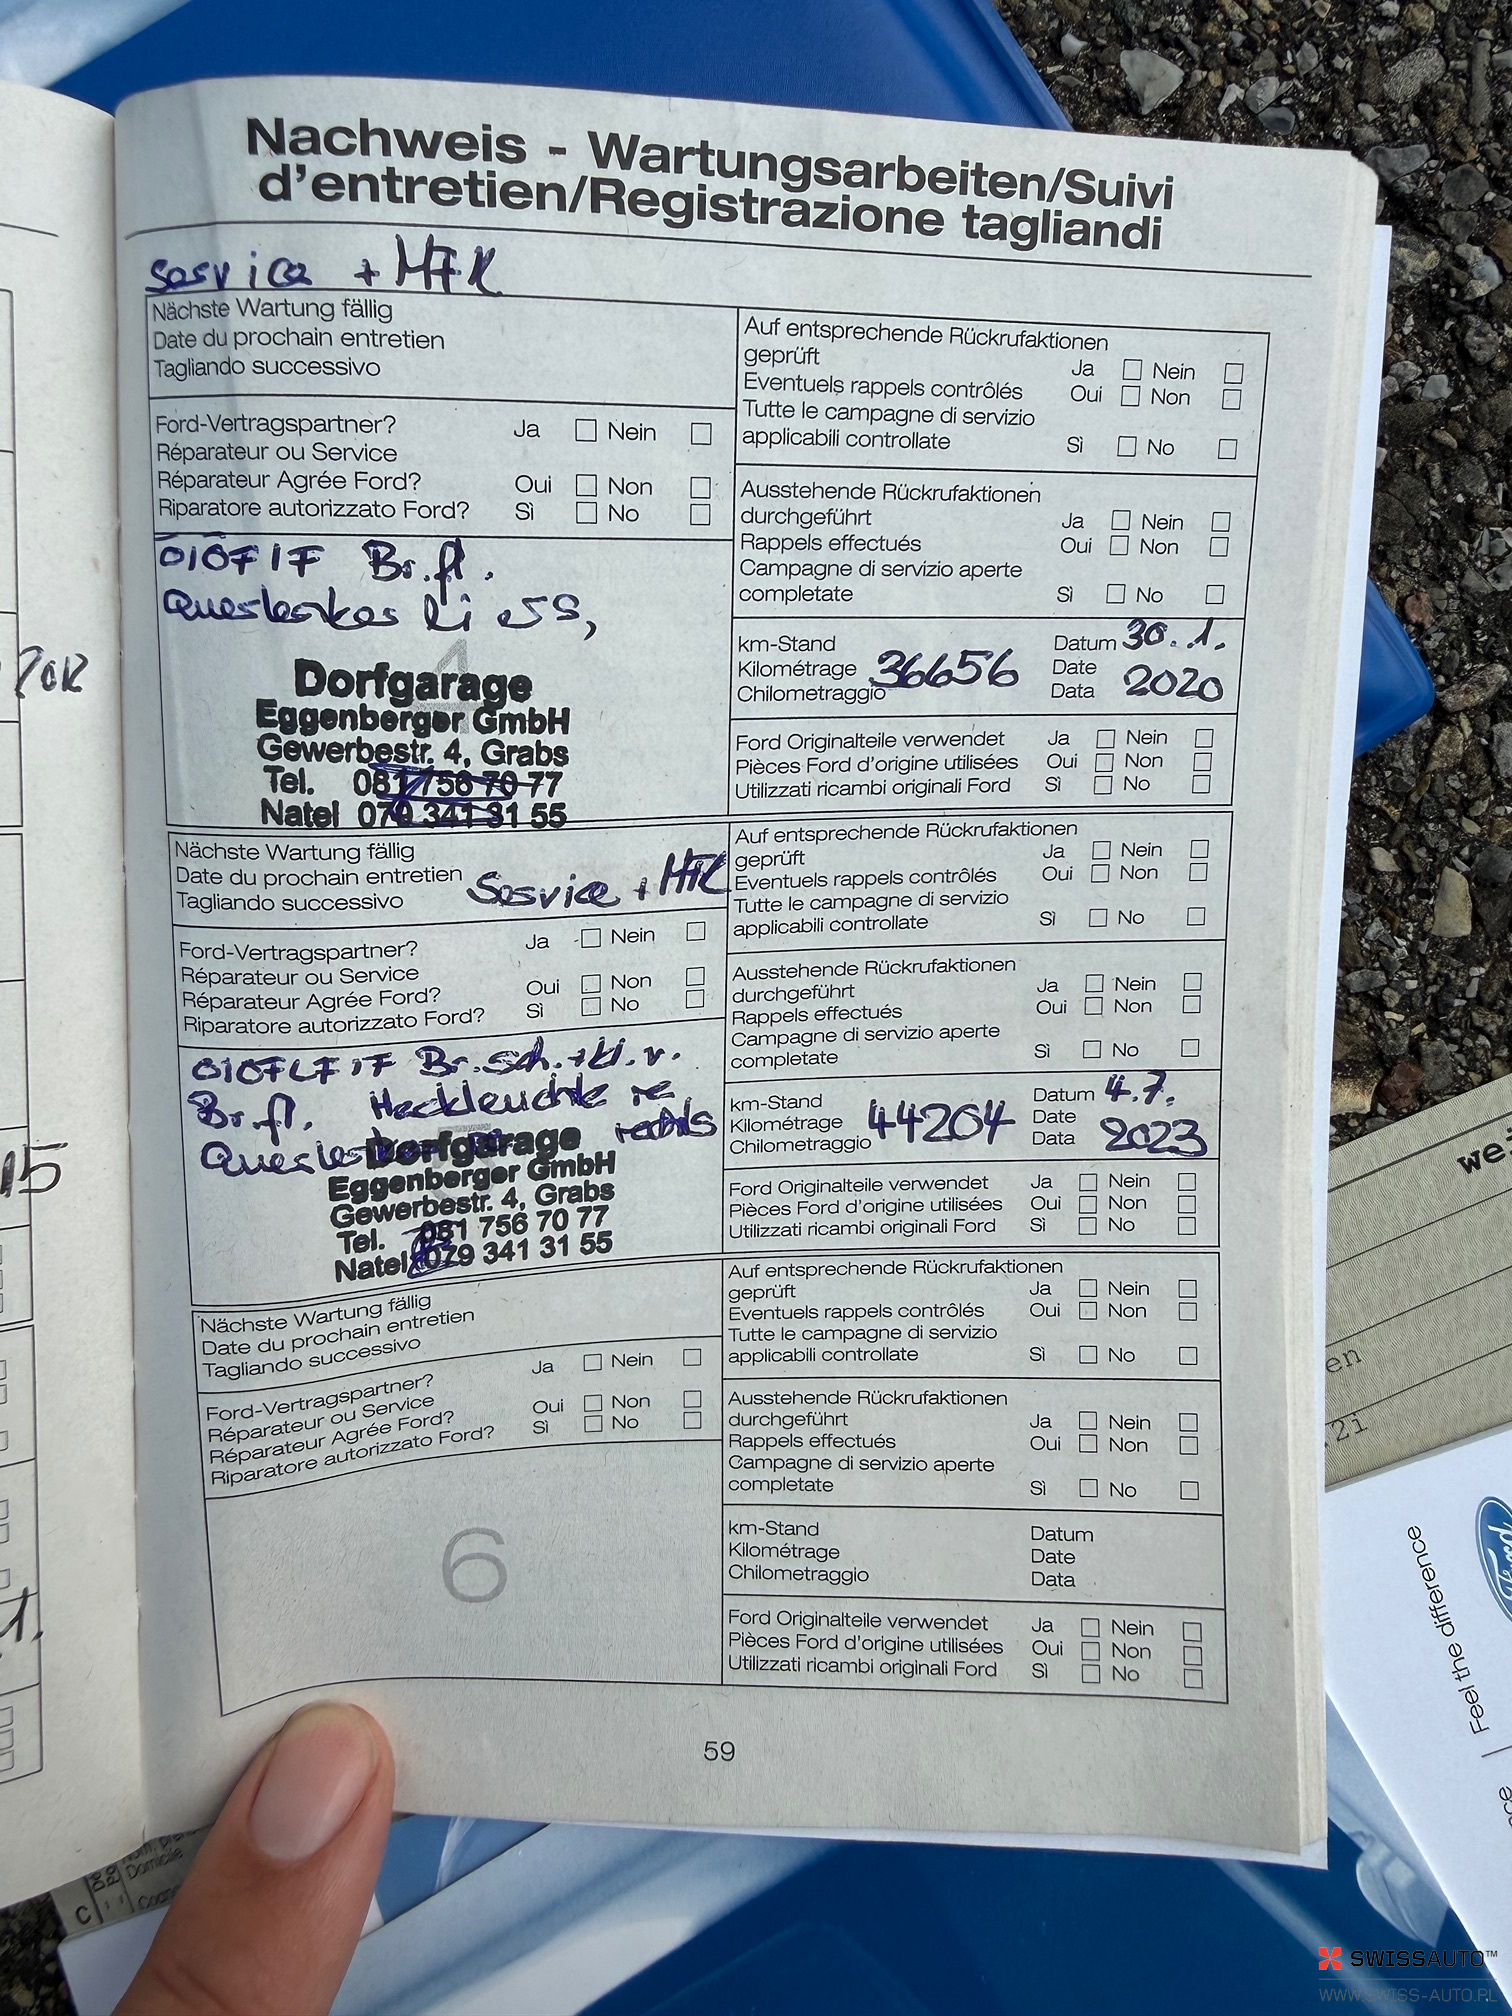 Nachweis - Wartungsarbeiten/Suivi
d'entretien/Registrazione tagliandi
Service + MFK
Nächste Wartung fällig
Date du prochain entretien
Tagliando successivo
Ford-Vertragspartner? Ja Nein
Réparateur ou Service
Réparateur Agrée Ford? Oui Non
Riparatore autorizzato Ford? Sì No
Br.fl.
Querlenker li
4
Dorfgarage
Eggenberger GmbH
Gewerbestr. 4, Grabs
Tel. 081 756 70 77
Natel 079 341 31 55
Auf entsprechende Rückrufaktionen
geprüft Ja Nein
Eventuels rappels contrôlés Oui Non
Tutte le campagne di servizio
applicabili controllate Sì No
Ausstehende Rückrufaktionen
durchgeführt Ja Nein
Rappels effectués Oui Non
Campagne di servizio aperte
completate Sì No
km-Stand Datum 30.1.
Kilométrage 36656 Date
Chilometraggio Data 2020
Ford Originalteile verwendet Ja Nein
Pièces Ford d'origine utilisées Oui Non
Utilizzati ricambi originali Ford Sì No
Nächste Wartung fällig
Date du prochain entretien Service + MFK
Tagliando successivo
Ford-Vertragspartner? Ja Nein
Réparateur ou Service
Réparateur Agrée Ford? Oui Non
Riparatore autorizzato Ford? Sì No
Br.sch.+kl.v.
Br.fl. Heckleuchte re
rechts
Dorfgarage
Eggenberger GmbH
Gewerbestr. 4, Grabs
Tel. 081 756 70 77
Natel 079 341 31 55
Auf entsprechende Rückrufaktionen
geprüft Ja Nein
Eventuels rappels contrôlés Oui Non
Tutte le campagne di servizio
applicabili controllate Sì No
Ausstehende Rückrufaktionen
durchgeführt Ja Nein
Rappels effectués Oui Non
Campagne di servizio aperte
completate Sì No
km-Stand Datum 4.7.
Kilométrage 44204 Date
Chilometraggio Data 2023
Ford Originalteile verwendet Ja Nein
Pièces Ford d'origine utilisées Oui Non
Utilizzati ricambi originali Ford Sì No
Nächste Wartung fällig
Date du prochain entretien
Tagliando successivo
Ford-Vertragspartner? Ja Nein
Réparateur ou Service
Réparateur Agrée Ford? Oui Non
Riparatore autorizzato Ford? Sì No
6
Auf entsprechende Rückrufaktionen
geprüft Ja Nein
Eventuels rappels contrôlés Oui Non
Tutte le campagne di servizio
applicabili controllate Sì No
Ausstehende Rückrufaktionen
durchgeführt Ja Nein
Rappels effectués Oui Non
Campagne di servizio aperte
completate Sì No
km-Stand Datum
Kilométrage Date
Chilometraggio Data
Ford Originalteile verwendet Ja Nein
Pièces Ford d'origine utilisées Oui Non
Utilizzati ricambi originali Ford Sì No
59
Feel the difference
Ford
Domicile
C
SWISSAUTO™
WWW.SWISS-AUTO.PL